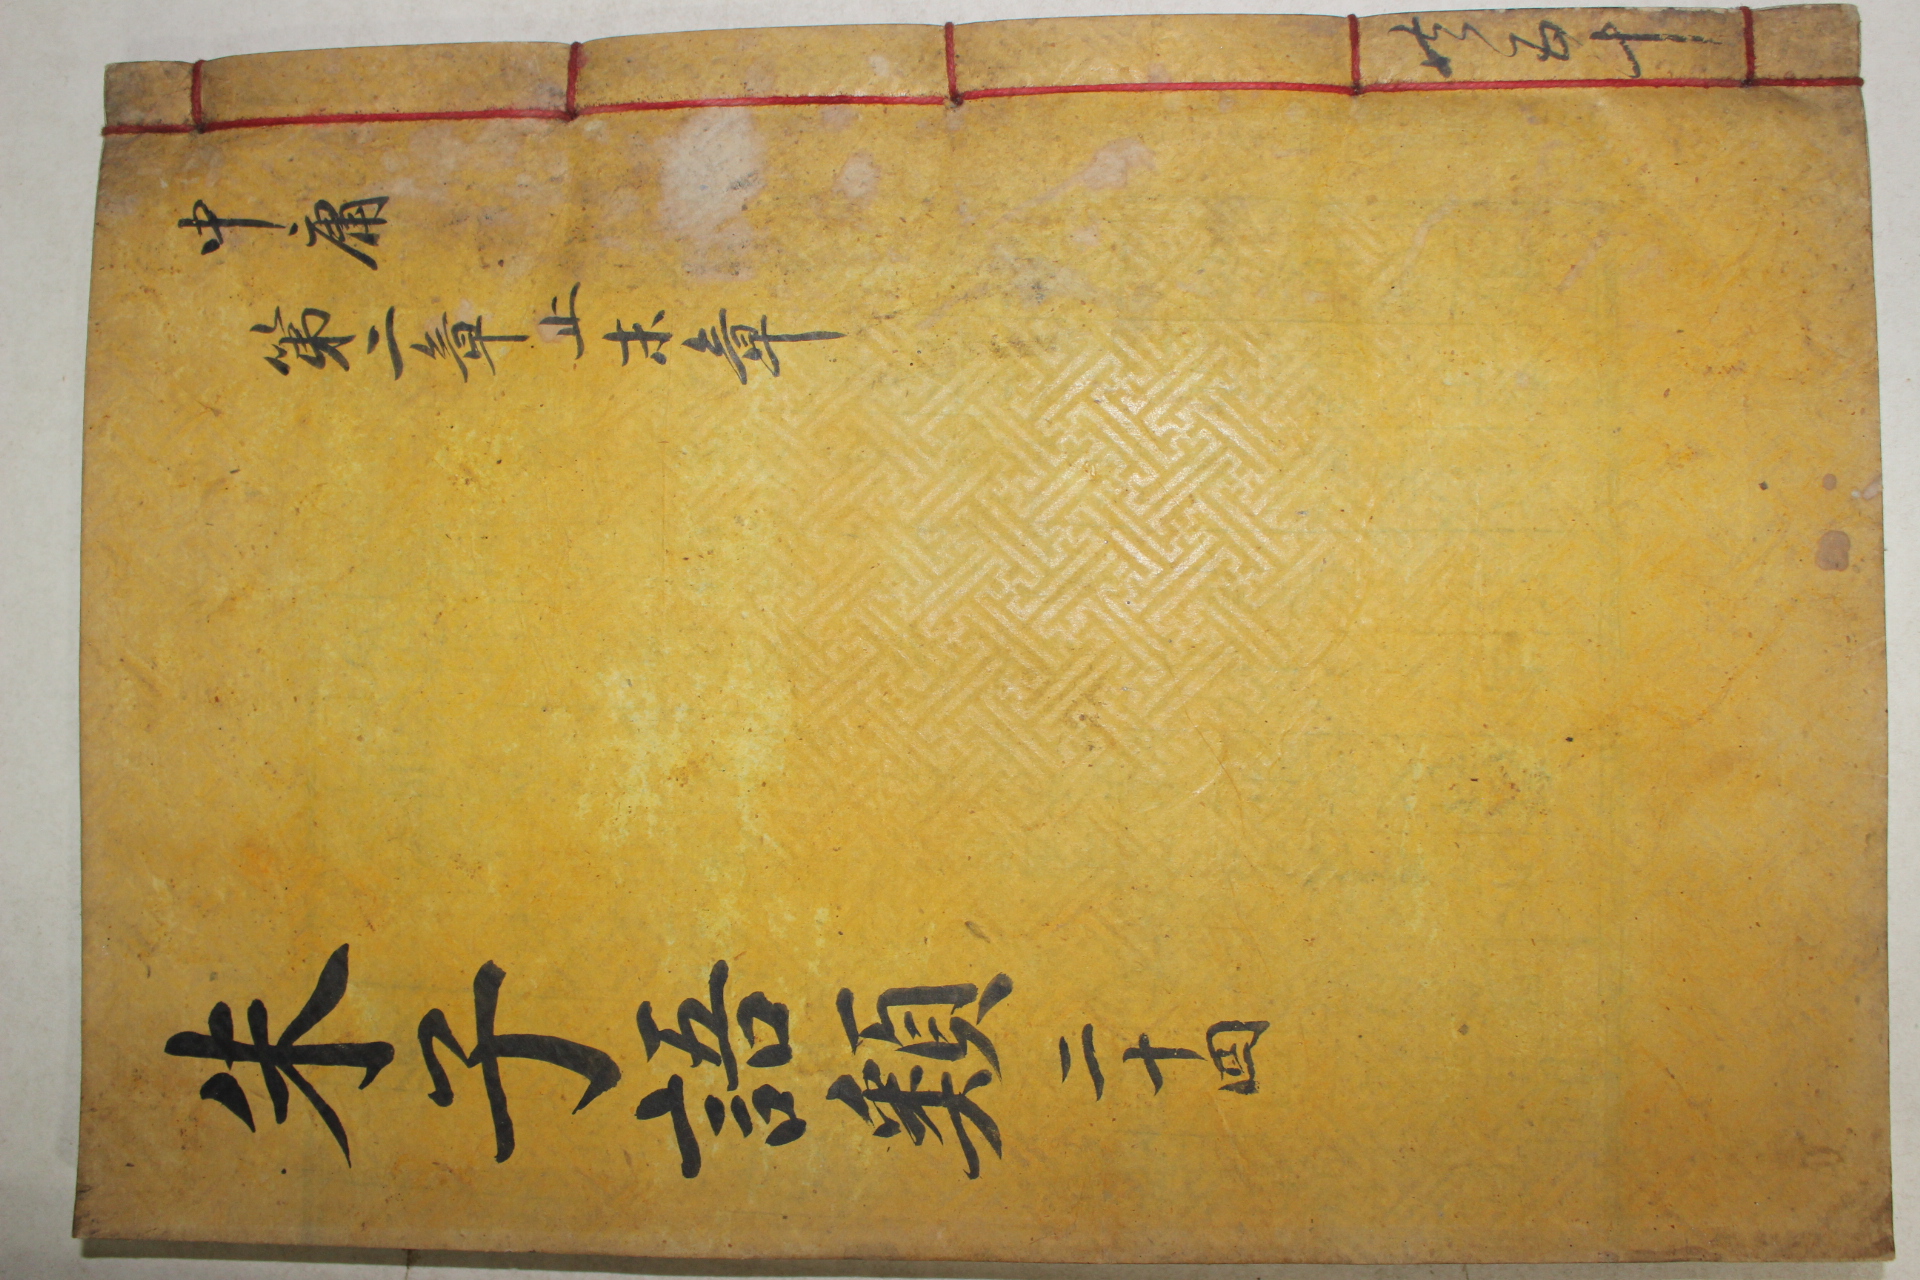 共五十
中庸
第二章止末章
朱子語類 二十四